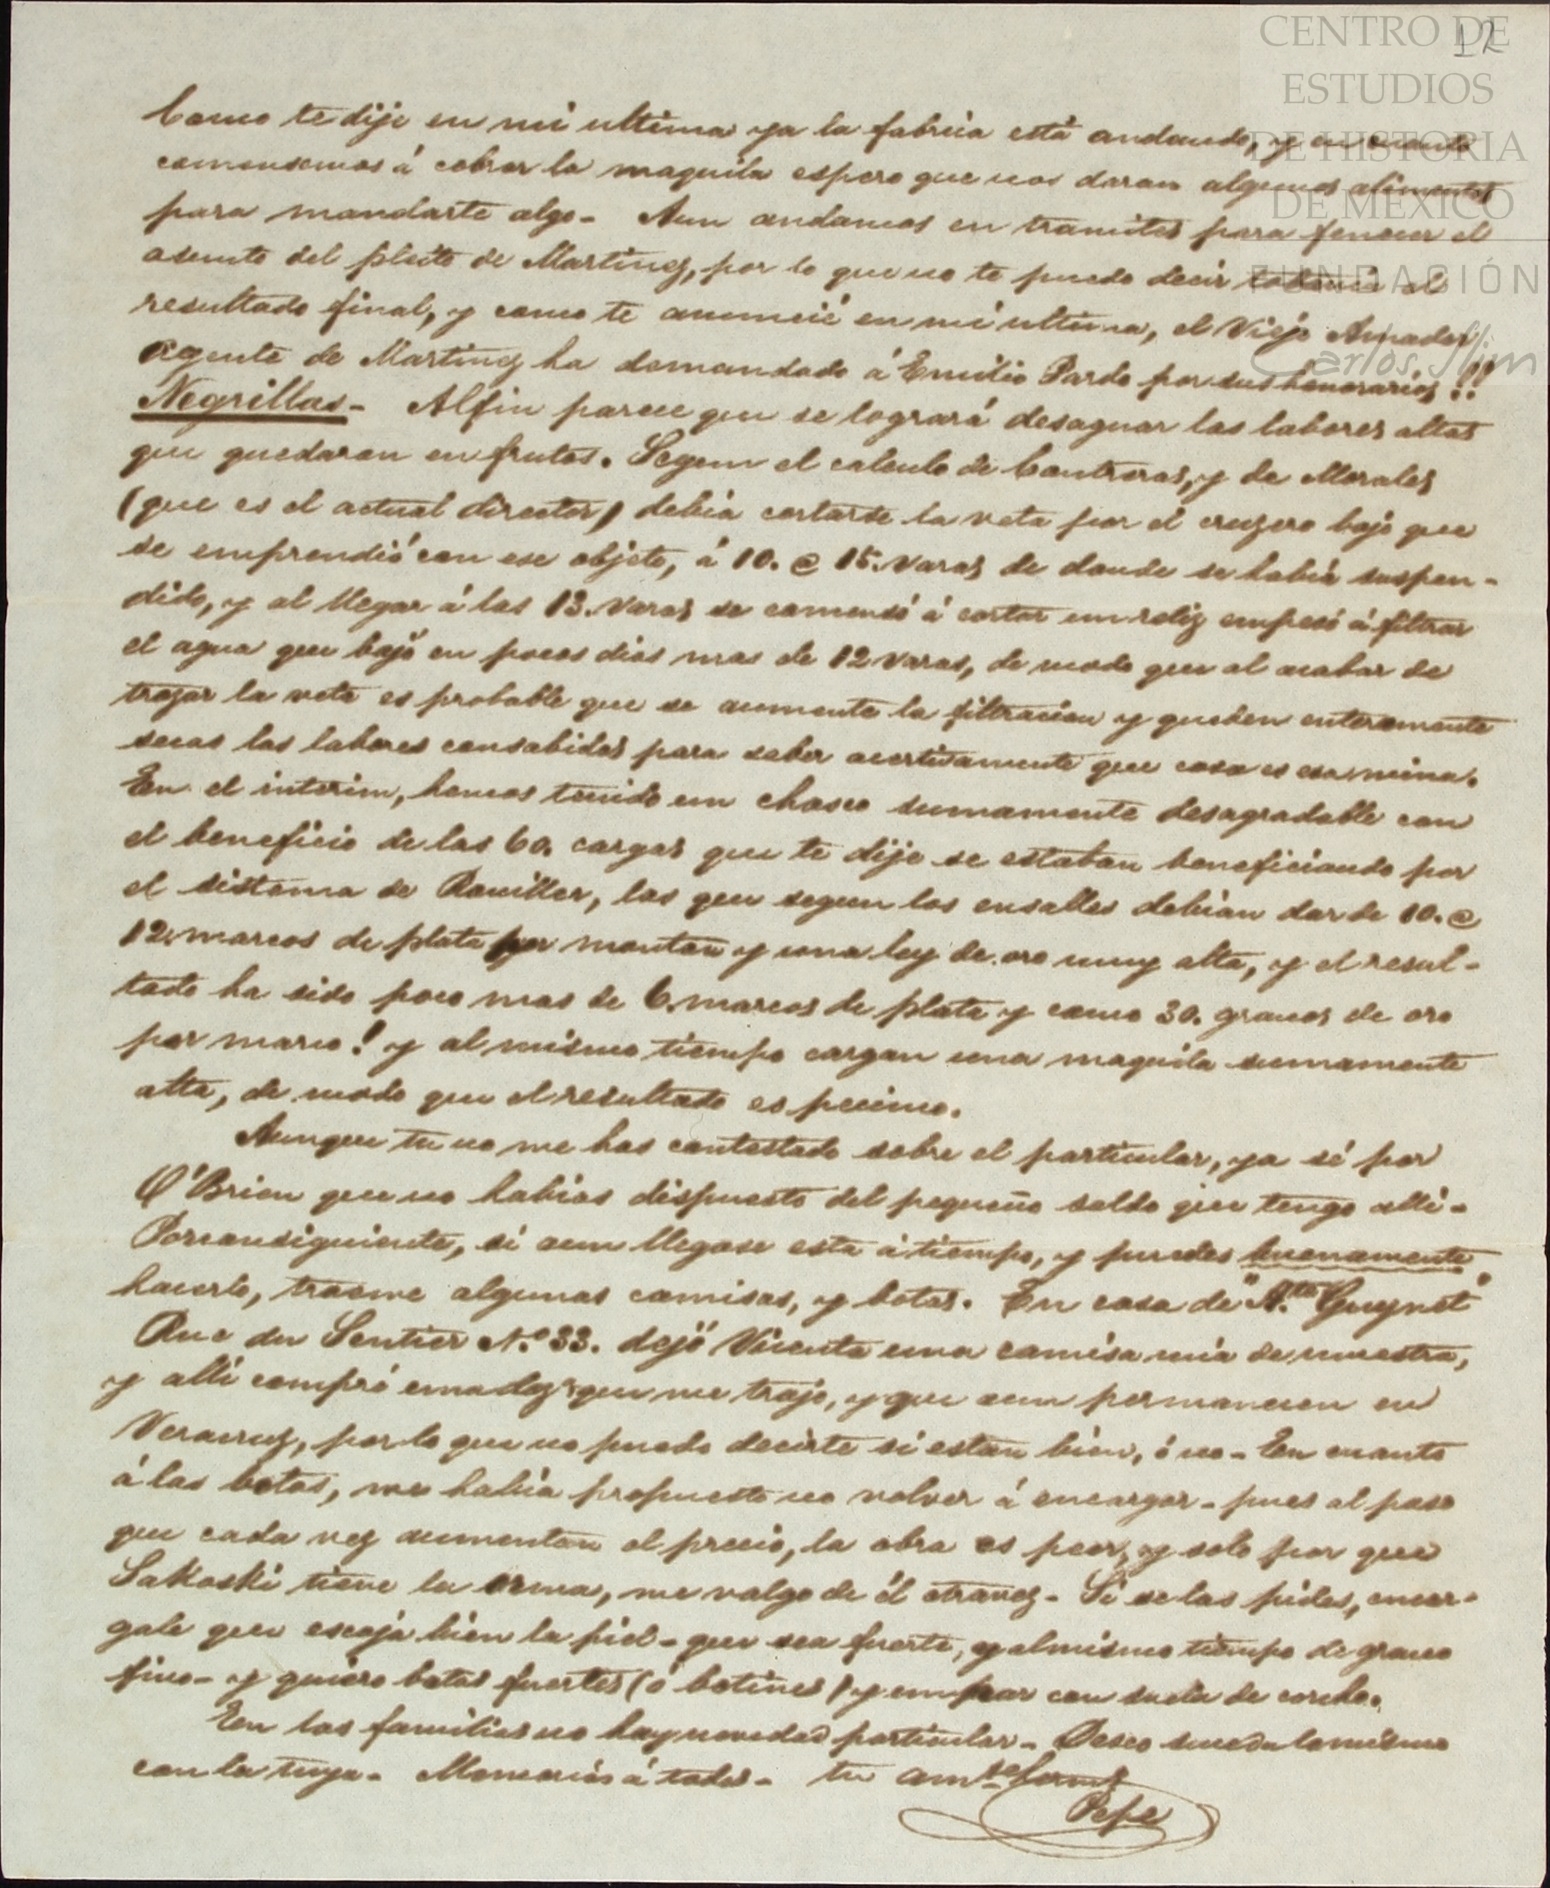 12
CENTRO DE
ESTUDIOS
DE HISTORIA
DE MÉXICO
FUNDACIÓN
Carlos Slim
Como te dije en mi ultima ya la fabrica está andando, y en cuanto
comensemos á cobrar la maquila espero que nos daran algunos alimentos
para mandarte algo - Aun andamos en tramites para fenecer el
asunto del pleito de Martinez, por lo que no te puedo decir todavia el
resultado final, y como te anuncié en mi ultima, el Viejo Amador
agente de Martinez ha demandado á Emilio Pardo por sus honorarios!!
Negrillas - Alfin parece que se logrará desaguar las labores altas
que quedaran en frutos. Segun el calculo de Contreras, y de Morales
(que es el actual director) debia cortarse la veta por el cruzero bajo que
se emprendió con ese objeto, á 10. @ 15. varas de donde se habia suspen-
dido, y al llegar á las 13. varas se comensó á cortar un reliz empesó á filtrar
el agua que bajó en pocos dias mas de 12 varas, de modo que al acabar de
trozar la veta es probable que se aumente la filtracion y queden enteramente
secas las labores consabidas para saber acertivamente que cosa es esa mina.
En el interim, hemos tenido un chasco sumamente desagradable con
el beneficio de las 60. cargas que te dije se estaban beneficiando por
el sistema de Rouiller, las que segun los ensalles debian dar de 10. @
12. marcos de plata por monton y una ley de oro muy alta, y el resul-
tado ha sido poco mas de 6. marcos de plata y como 30. granos de oro
por marco! y al mismo tiempo cargan una maquila sumamente
alta, de modo que el resultado es pecimo.
Aunque tu no me has contestado sobre el particular, ya sé por
O'Brien que no habias dispuesto del pequeño saldo que tengo allí -
Porconsiguiente, si aun llegase esta á tiempo, y puedes buenamente
hacerlo, traeme algunas camisas, y botas. En casa de "A.te Gueynet"
Rue du Sentier N.º 33. dejó Vicente una camisa mia de muestra,
y allí compró una doz.ª que me trajo, y que aun permanecen en
Veracruz, por lo que no puedo decirte si estan bien, ó no - En cuanto
á las botas, me habia propuesto no volver á encargar - pues al paso
que cada vez aumentan el precio, la obra es peor, y solo por que
Sakoski tiene la orma, me valgo de él otra vez - Si se las pides, encar-
gale que escoja bien la piel - que sea fuerte, y al mismo tiempo de grano
fino - y quiero botas fuertes (ó botines) y un par con suela de corcho.
En las familias no hay novedad particular - Deseo suceda lo mismo
con la tuya - Memorias á todos - tu am.te herm.º
Pepe